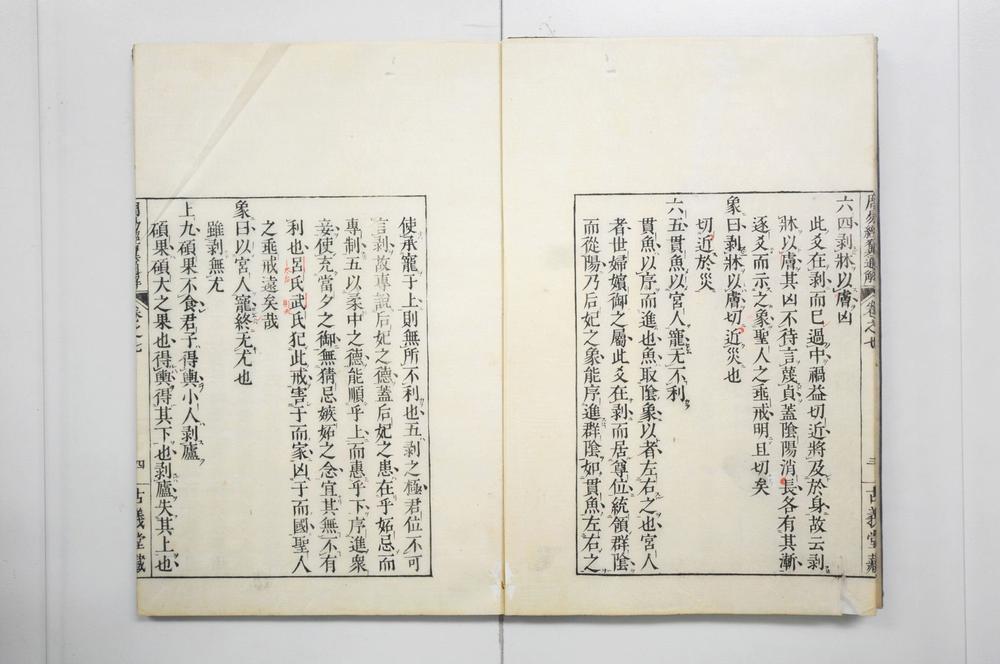 周易經翼通解 卷之七 三 古義堂藏
六四剥牀以膚凶
此爻在剥而巳過中禍益切近將及於身故云剥
牀以膚其凶不待言蔑貞蓋陰陽消長各有其漸
逐爻而示之象聖人之垂戒明且切矣
象曰剥牀以膚切近災也
切近於災
六五貫魚以宮人寵无不利
貫魚以序而進也魚取陰象以者左右之也宮人
者世婦嬪御之屬此爻在剥而居尊位統領群陰
而從陽乃后妃之象能序進群陰如貫魚左右之
使承寵于上則無所不利也五剥之極君位不可
言剥故專說后妃之德蓋后妃之患在乎妬忌而
專制五以柔中之德能順乎上而惠乎下序進衆
妾使充當夕之御無猜忌嫉妬之念宜其無不有
利也呂氏武氏犯此戒害于而家凶于而國聖人
之垂戒遠矣哉
象曰以宮人寵終无尤也
雖剥無尤
上九碩果不食君子得輿小人剥廬
碩果碩大之果也得輿得其下也剥廬失其上也
周易經翼通解 卷之七 四 古義堂藏